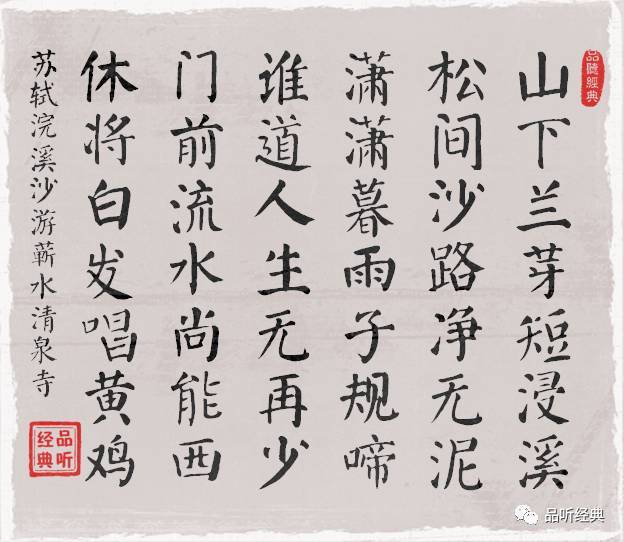 品聽經典
山下兰芽短浸溪
松间沙路净无泥
潇潇暮雨子规啼
谁道人生无再少
门前流水尚能西
休将白发唱黄鸡
苏轼浣溪沙游蕲水清泉寺
品听经典
品听经典